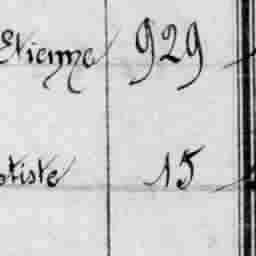 Etienne 929
tiste 15